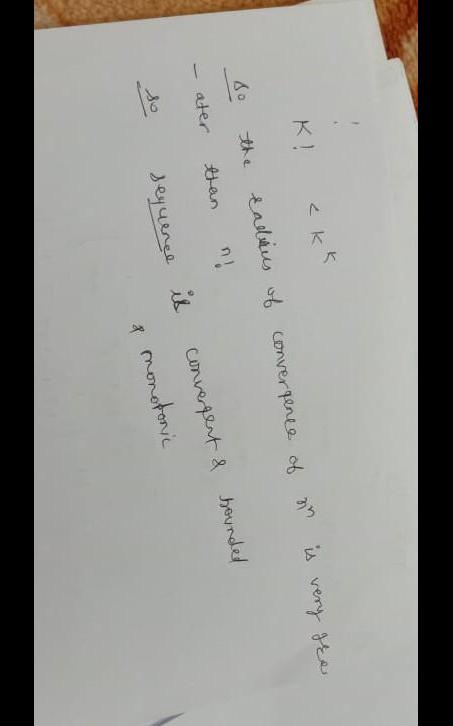 :
K! < K^K
So the radius of convergence of n^n is very gre
- ater than n!
so sequence is convergent & bounded
& monotonic